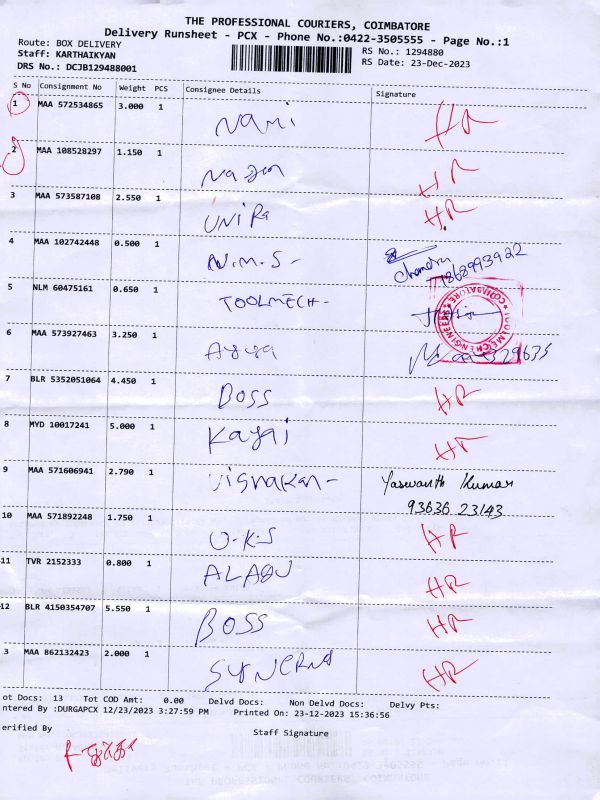 THE PROFESSIONAL COURIERS, COIMBATORE
Delivery Runsheet - PCX - Phone No.:0422-3505555 - Page No.:1
Route: BOX DELIVERY
Staff: KARTHAIKYAN
DRS No.: DCJB129488001
RS No.: 1294880
RS Date: 23-Dec-2023
S No Consignment No Weight PCS Consignee Details Signature
1 MAA 572534865 3.000 1 Nami HR
2 MAA 108528297 1.150 1 HR
3 MAA 573587108 2.550 1 HR
4 MAA 102742448 0.500 1 N.M.S- Chandru
5 NLM 60475161 0.650 1 TOOLMECH-
TOOLMECH ENGINEERS COIMBATORE
6 MAA 573927463 3.250 1
7 BLR 5352051064 4.450 1 BOSS HR
8 MYD 10017241 5.000 1 HR
9 MAA 571606941 2.790 1 Yaswanth Kumar
93636 23143
10 MAA 571892248 1.750 1 U.K.S HR
11 TVR 2152333 0.800 1 ALAGU HR
12 BLR 4150354707 5.550 1 BOSS HR
3 MAA 862132423 2.000 1 HR
ot Docs: 13 Tot COD Amt: 0.00 Delvd Docs: Non Delvd Docs: Delvy Pts:
ntered By :DURGAPCX 12/23/2023 3:27:59 PM Printed On: 23-12-2023 15:36:56
erified By Staff Signature